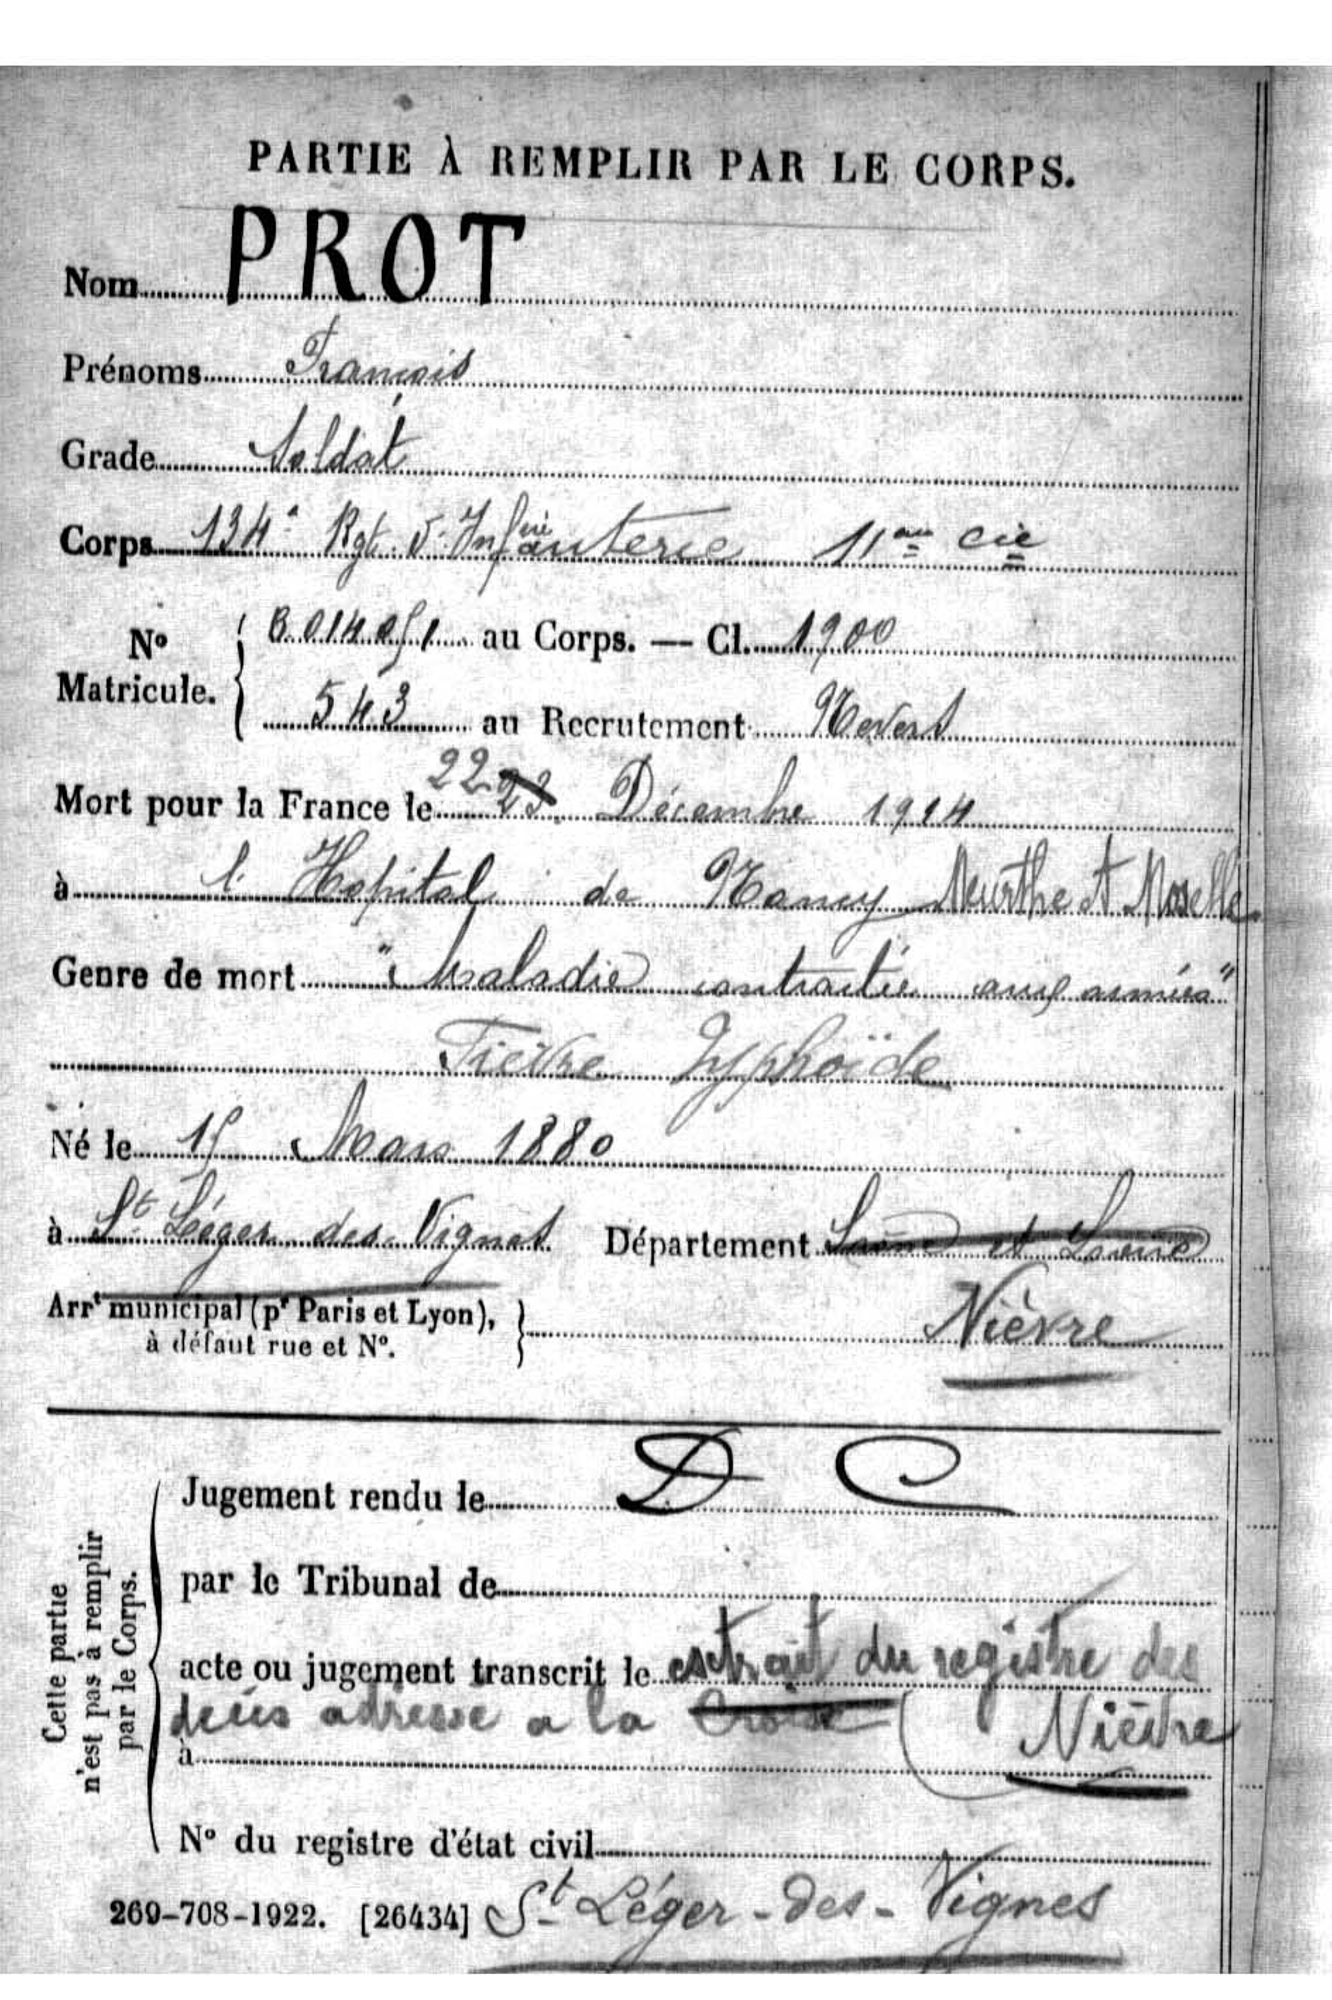 PARTIE À REMPLIR PAR LE CORPS.
Nom PROT
Prénoms François
Grade Soldat
Corps 134e Rgt d'Infanterie 11me Cie
No Matricule. { B 014051 au Corps. — Cl. 1900
543 au Recrutement Nevers
Mort pour la France le 22 23 Décembre 1914
à l'Hopital de Nancy Meurthe et Moselle
Genre de mort "Maladie contractée aux armées"
Fièvre Typhoïde
Né le 15 Mars 1880
à St Léger des Vignes Département Saône et Loire
Arrt municipal (pr Paris et Lyon), à défaut rue et No. } Nièvre
Cette partie n'est pas à remplir par le Corps.
Jugement rendu le D C
par le Tribunal de
acte ou jugement transcrit le extrait du registre des
décés adresse a la Nièvre
à
No du registre d'état civil
269-708-1922. [26434] St Léger-des-Vignes